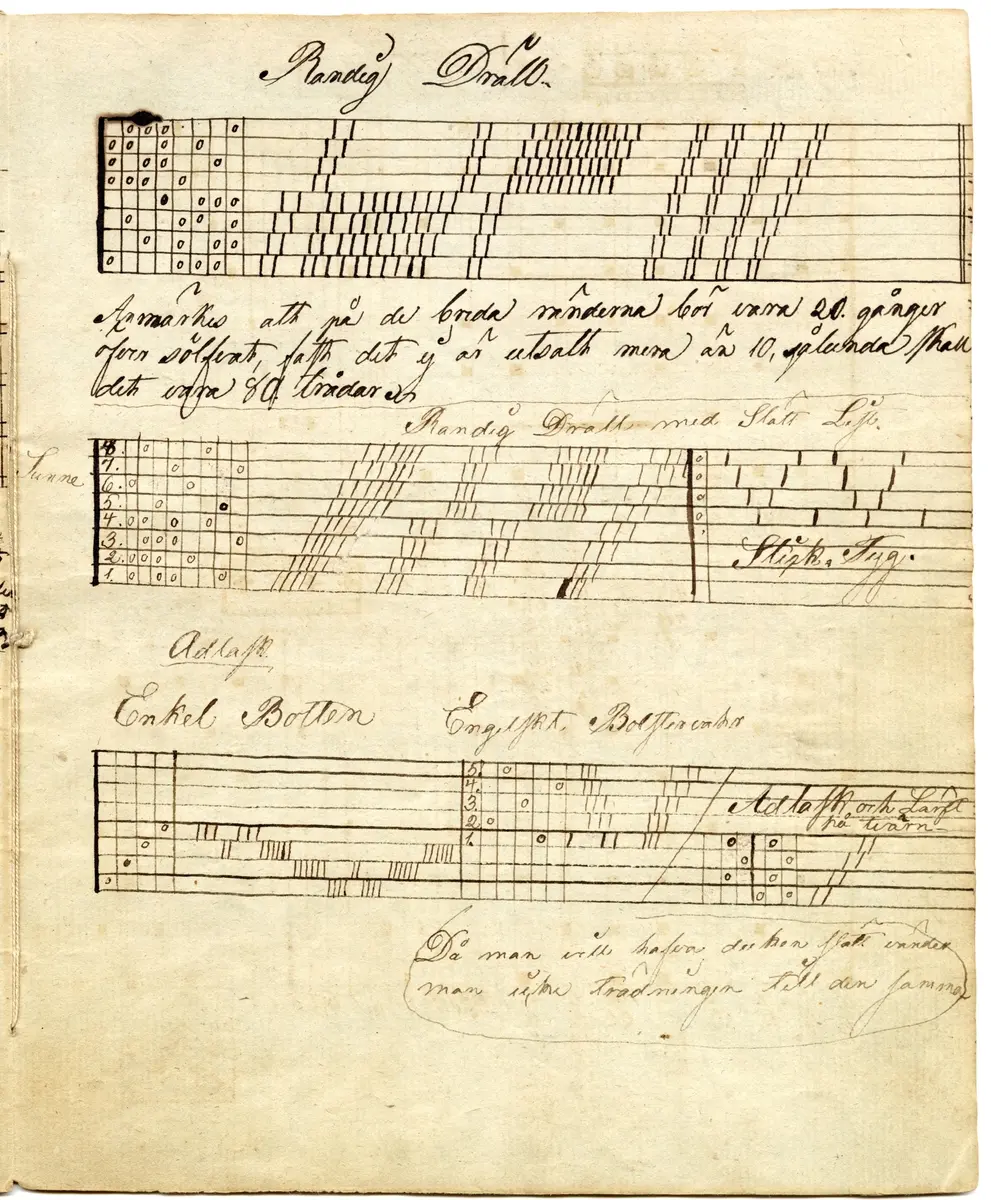 Randig Dräll.
Anmärkes att på de breda ränderna bör vara 20. gånger
öfver sölfvat, fast det ej är utsatt mera än 10, sålunda skall
det vara 80. trådar
Randig Dräll med Slätt
Sunne
8.
7.
6.
5.
4.
3.
2.
1.
Tyg.
Adlask
Enkel Botten
Engelskt. Bolstervahr
5.
4.
3.
2
1.
Adlask och Lärft
på tvärn
Då man vill hafva slätt vänder
man icke trädningen till den samma